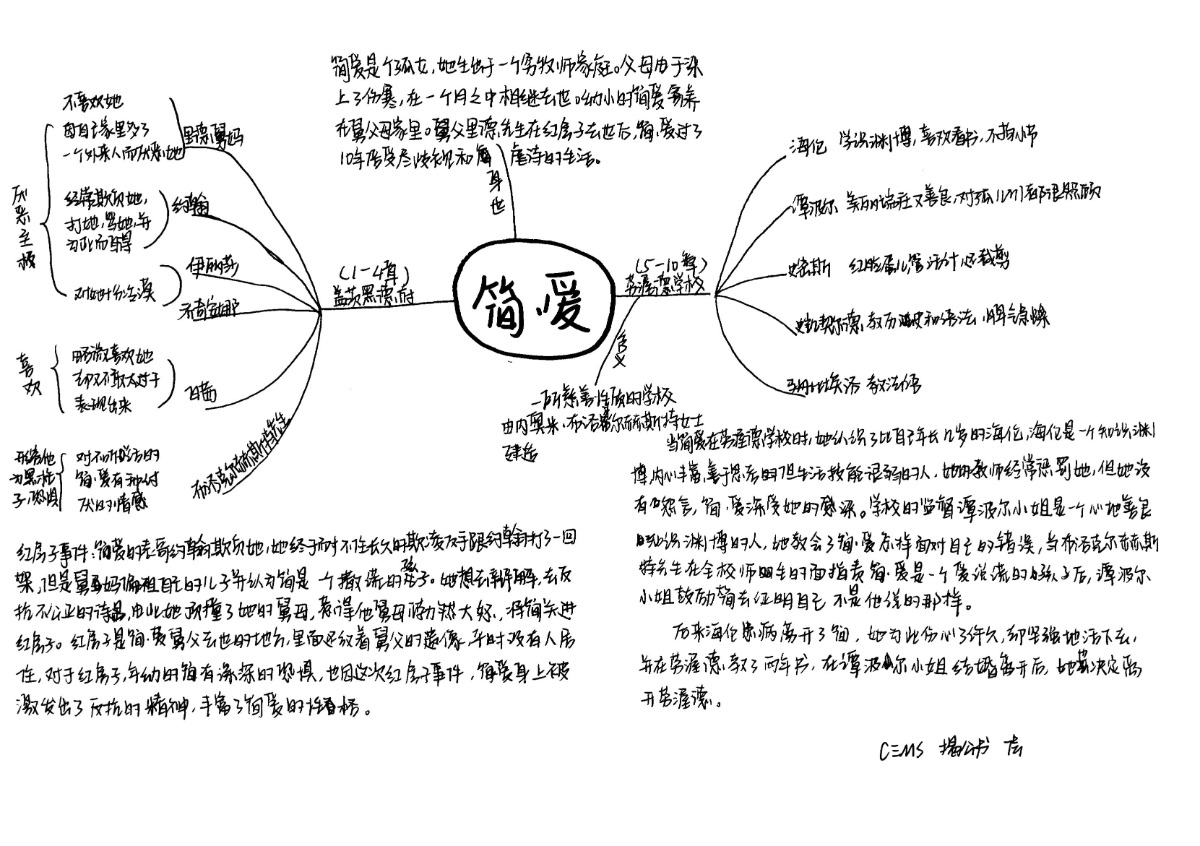 简爱是个孤女，她生出于一个穷牧师家庭。父母由于染
上了伤寒，在一个月之中相继去世。幼小的简爱寄养
在舅父母家里。舅父里德先生在红房子去世后，简·爱过了
10年倍受尽歧视和虐待的生活。
身世
简爱
(1-4章)
盖茨黑德府
里德舅妈
不喜欢她
因自家里多了
一个外来人而厌恶她
约翰
经常欺负她，
打她，骂她，并
为此而自得
伊丽莎
乔奇安娜
对她十分冷漠
厌恶主极
白茜
略微喜欢她
却又不敢太过于
表现出来
喜欢
布洛克尔赫斯特
对不听话的
简·爱有种讨
厌的情感
(5-10章)
劳渥德学校
海伦 学识渊博，喜欢看书，不拘小节
谭波尔 美丽端庄又善良，对孤儿们都很照顾
史密斯 红脸蛋儿管活计还裁剪
教历史和语法，脾气急燥
教法语
含义
一所慈善性质的学校
由内奥米·布洛克尔赫斯特女士
建造
红房子事件：简爱的表哥约翰欺负她，她终于耐不住长久的欺凌反手跟约翰打了一回
架，但是舅妈偏袒自己的儿子并认为简是一个撒谎的孩子。她想去辩解，去反
抗不公正的待遇，由此她顶撞了她的舅母，惹得他舅母勃然大怒，将简关进
红房子。红房子是简·爱舅父去世的地方，里面还放着舅父的遗像，平时没有人居
住，对于红房子，年幼的简有深深的恐惧，也因这次红房子事件，简爱身上被
激发出了反抗的精神，丰富了简爱的性格。
当简爱在劳渥德学校时，她认识了比自己年长几岁的海伦，海伦是一个知识渊
博，内心丰富，善于思考的但生活技能很弱的人，她的教师经常惩罚她，但她没
有怨言，简·爱深受她的感染。学校的监督谭波尔小姐是一个心地善良
知识渊博的人，她教会了简·爱怎样面对自己的错误，当布洛克尔赫斯
特先生在全校师生的面指责简·爱是一个爱说谎的孩子后，谭波尔
小姐鼓励简去证明自己不是他说的那样。
后来海伦患病离开了简，她为此伤心了许久，却坚强地活下去，
并在劳渥德教了两年书，在谭波尔小姐结婚离开后，她决定离
开劳渥德。